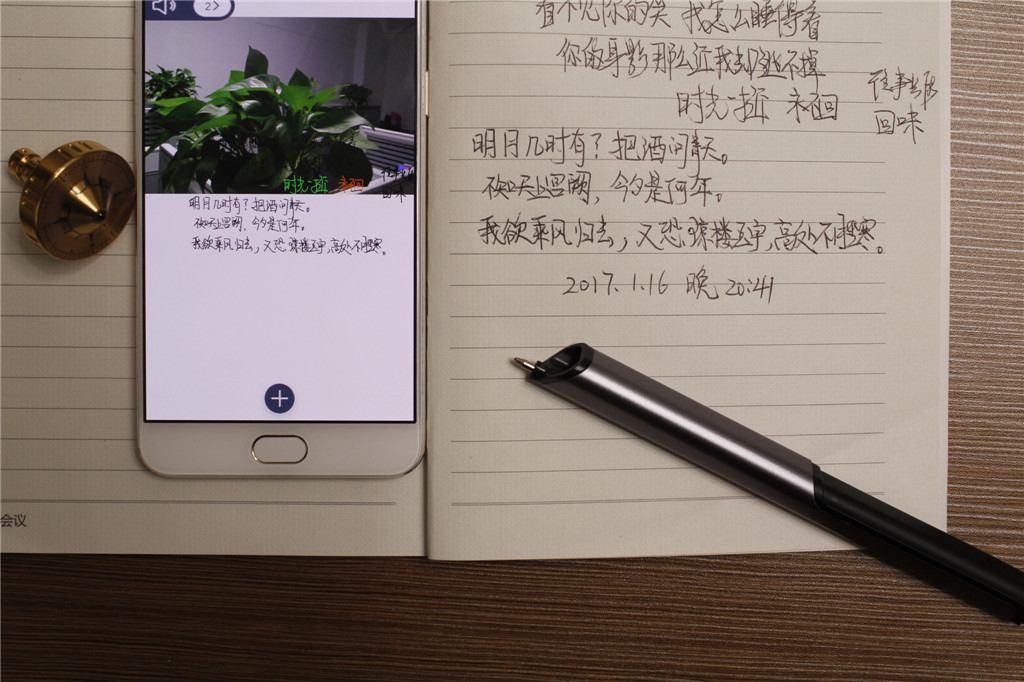 2>
时光一逝 永不回
往事只能
回味
明月几时有？把酒问青天。
不知天上宫阙，今夕是何年。
我欲乘风归去，又恐琼楼玉宇，高处不胜寒。
会议
看不见你的笑 我怎么睡得着
你的身影那么近我却抱不掉
时光一逝 永不回
往事只能
回味
明月几时有？把酒问青天。
不知天上宫阙，今夕是何年。
我欲乘风归去，又恐琼楼玉宇，高处不胜寒。
2017.1.16 晚 20:41